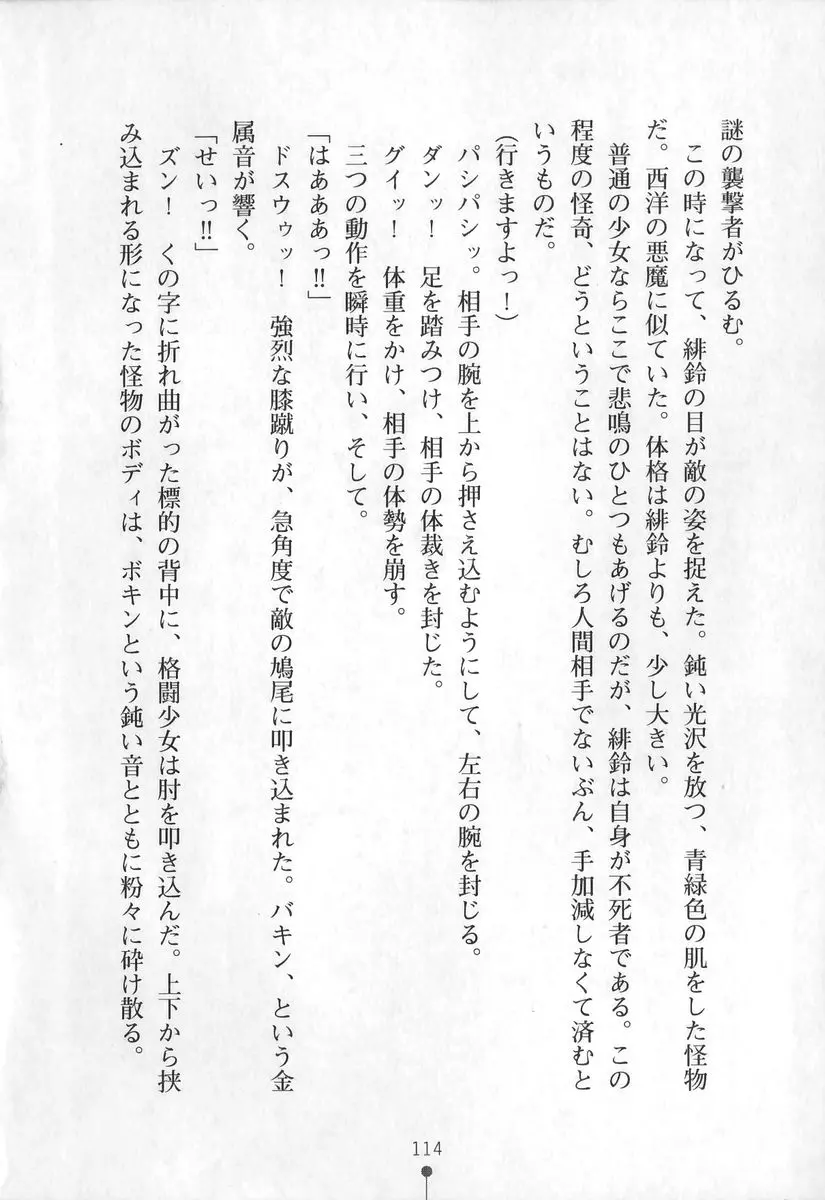 謎の襲撃者がひるむ。
　この時になって、緋鈴の目が敵の姿を捉えた。鈍い光沢を放つ、青緑色の肌をした怪物
だ。西洋の悪魔に似ていた。体格は緋鈴よりも、少し大きい。
　普通の少女ならここで悲鳴のひとつもあげるのだが、緋鈴は自身が不死者である。この
程度の怪奇、どうということはない。むしろ人間相手でないぶん、手加減しなくて済むと
いうものだ。
（行きますよっ！）
　パシパシッ。相手の腕を上から押さえ込むようにして、左右の腕を封じる。
　ダンッ！　足を踏みつけ、相手の体裁きを封じた。
　グイッ！　体重をかけ、相手の体勢を崩す。
　三つの動作を瞬時に行い、そして。
「はあああっ‼」
　ドスウゥッ！　強烈な膝蹴りが、急角度で敵の鳩尾に叩き込まれた。バキン、という金
属音が響く。
「せいっ‼」
　ズン！　くの字に折れ曲がった標的の背中に、格闘少女は肘を叩き込んだ。上下から挟
み込まれる形になった怪物のボディは、ボキンという鈍い音とともに粉々に砕け散る。
114